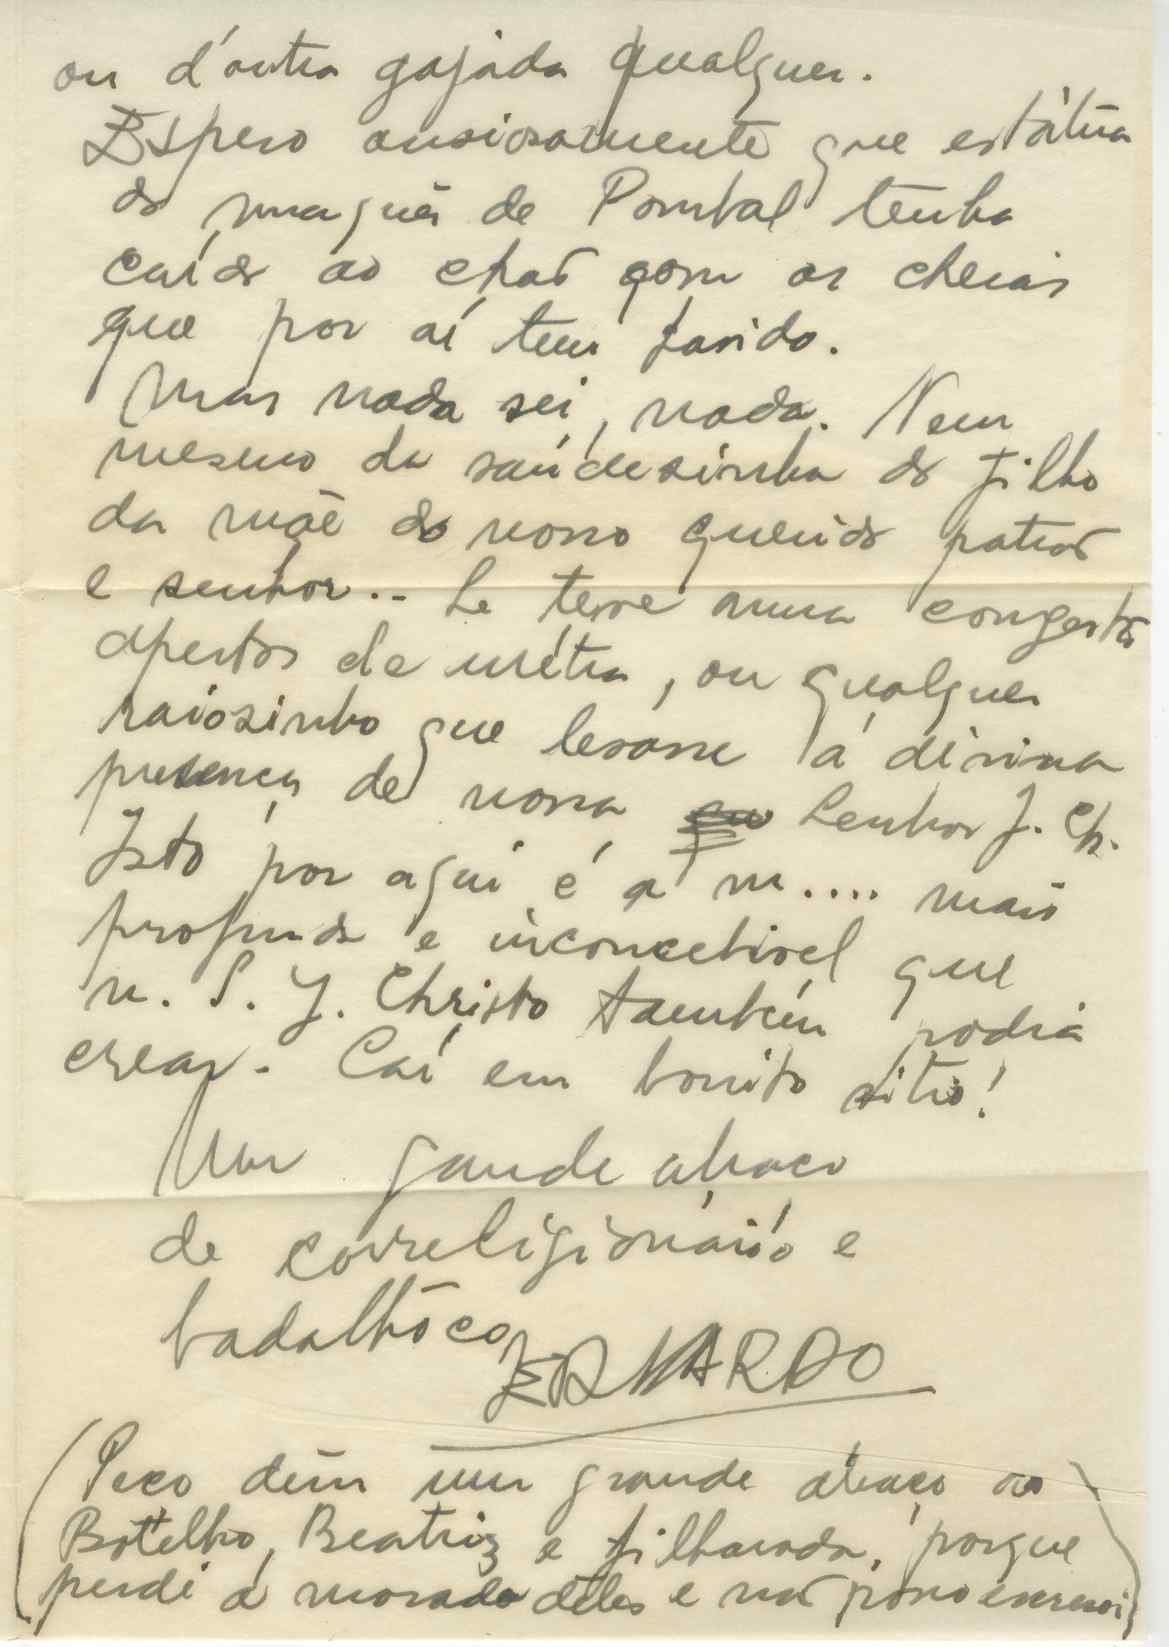 ou d'outra gajada qualquer.
Espero ansiosamente que estátua
do marquês de Pombal tenha
caído ao chão com as cheias
que por aí tem havido.
Mas nada sei, nada. Nem
mesmo da saúdesinha do filho
da mãe do nosso querido patrão
e senhor... Se teve uma congestão
apertos de urétra, ou qualquer
raiosinho que levasse á divina
presença de nosso Senhor J. Ch.
Isto por aqui é a m.... mais
profunda e inconcebivel que
N. S. J. Christo também podia
crear. Caí em bonito sitio!
Um grande abraço
de correligionário e
badalhôco
BERNARDO
(Peço dêm um grande abraço ao
Botelho, Beatriz e filharada, porque
perdi a morada dêles e não posso escrever)